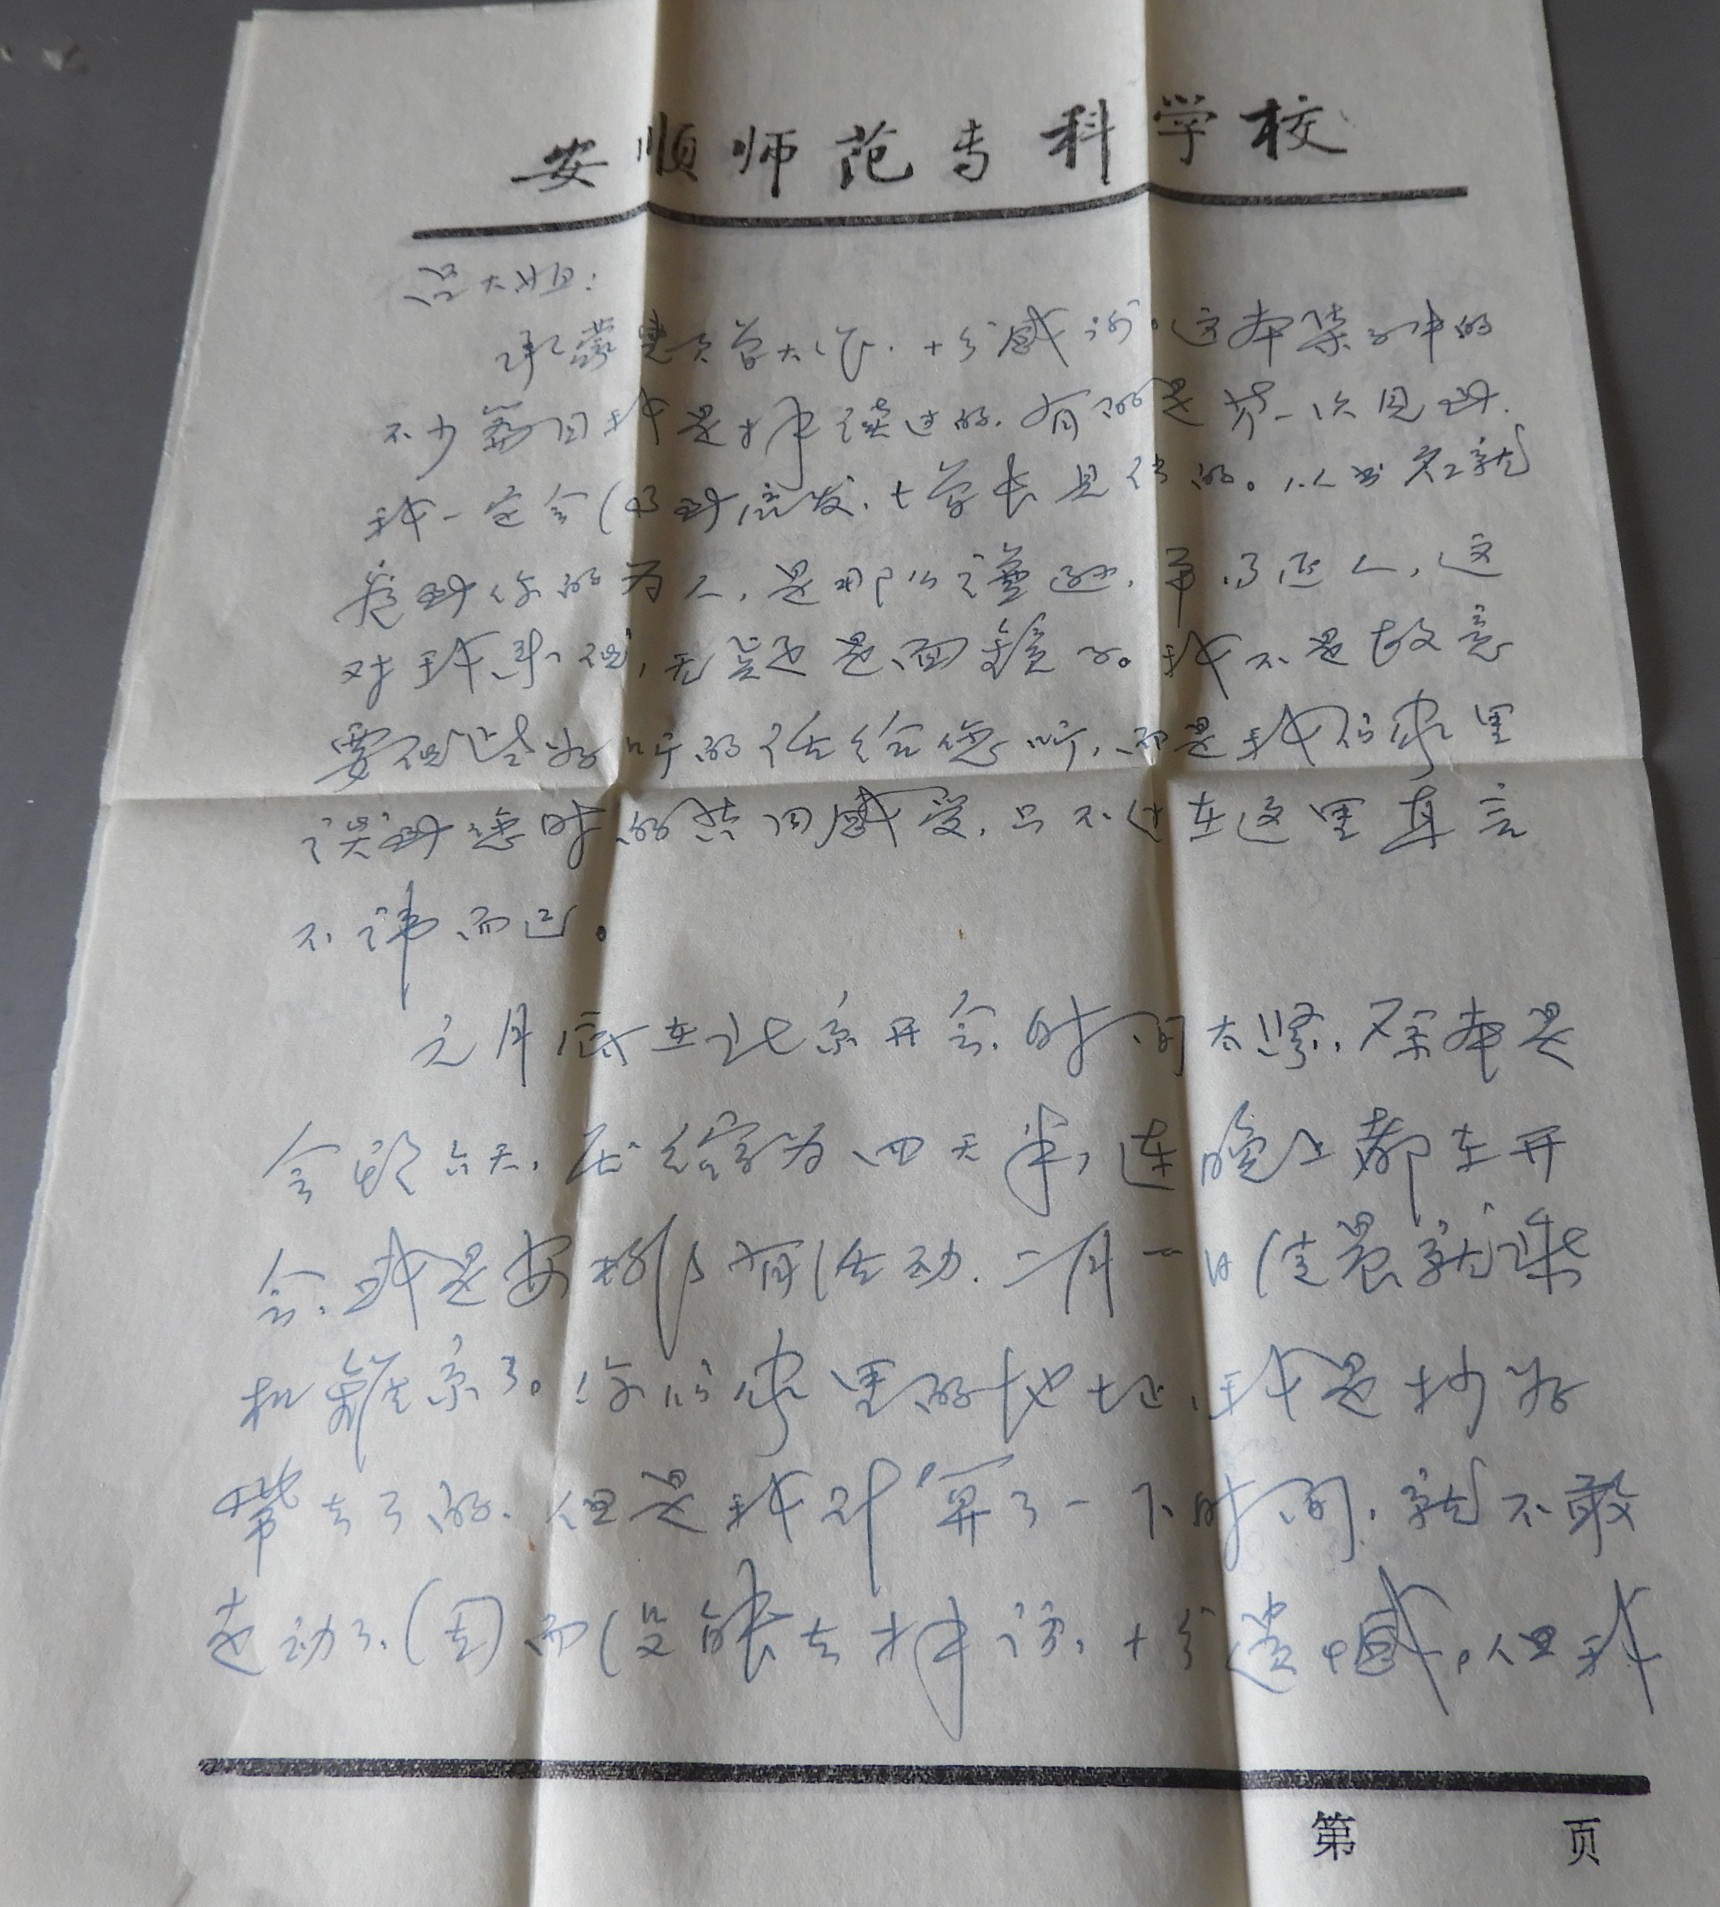 安顺师范专科学校
吕大姐：
承蒙惠赠大作，十分感谢。这本集子中的
不少篇目我是拜读过的，有的是第一次见到，
我一定会得到启发，七学长具的。从书名就
看到你的为人，是那么谨逊，平易近人，这
对我来说，无疑是面镜子。我不是故意
要说些好听的话给您听，而是我们家里
谈到您时的共同感受，只不过在这里直言
不讳而已。
元月底在北京开会，时间太紧，原本是
会期六天，压缩为四天半，连晚上都在开
会，或是安排有活动，二月一日清晨就乘
机离京了。你们家里的地址，我是抄好
带去了的，但是我计算了一下时间，就不敢
走动了，因而没能去拜访，十分遗憾，但我
第 页